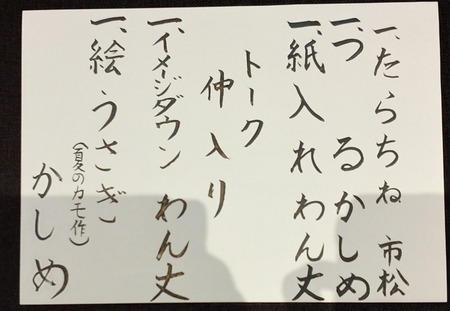 一、たらちね 市松
一、つる かしめ
一、紙入れ わん丈
トーク
仲入り
一、イメージダウン わん丈
一、絵うさぎ
(夏のカモ作)
かしめ